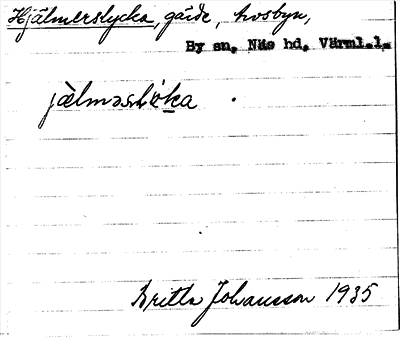 Hjälmerslycka, gärde, Åvosbyn,
By sn, Näs hd, Värml.l.
jälməsłö̀ka .
Britta Johansson 1935